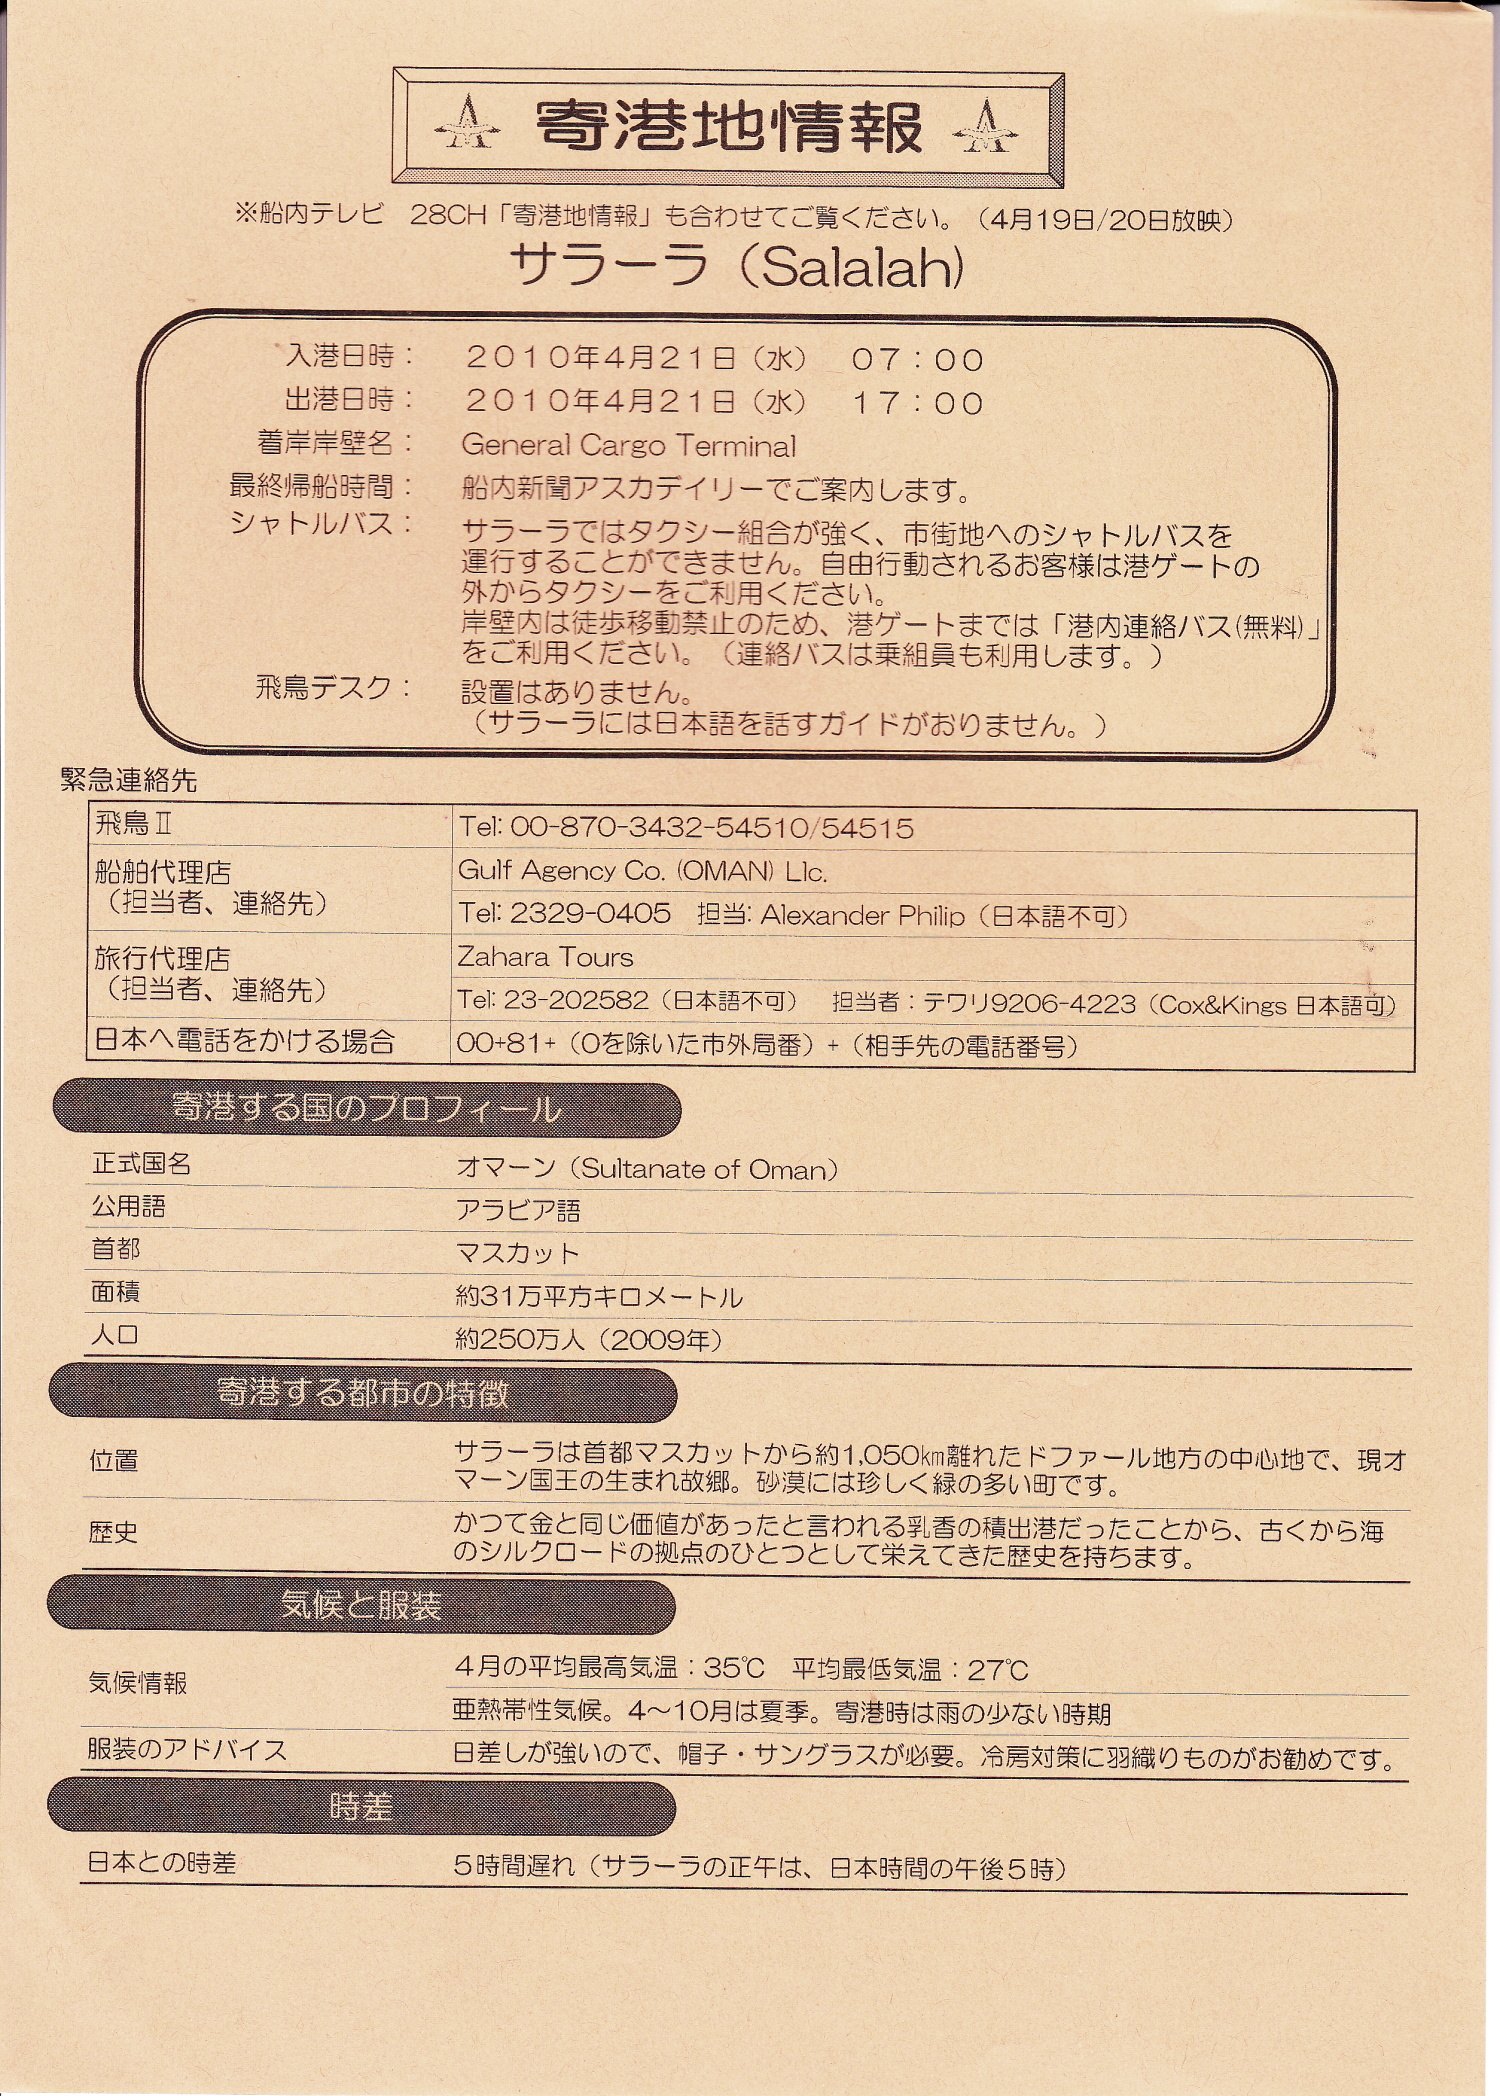 寄港地情報
※船内テレビ　28CH「寄港地情報」も合わせてご覧ください。（4月19日/20日放映）
サラーラ（Salalah）
入港日時：　２０１０年４月２１日（水）　０７：００
出港日時：　２０１０年４月２１日（水）　１７：００
着岸岸壁名：　General Cargo Terminal
最終帰船時間：　船内新聞アスカデイリーでご案内します。
シャトルバス：　サラーラではタクシー組合が強く、市街地へのシャトルバスを
運行することができません。自由行動されるお客様は港ゲートの
外からタクシーをご利用ください。
岸壁内は徒歩移動禁止のため、港ゲートまでは「港内連絡バス(無料)」
をご利用ください。（連絡バスは乗組員も利用します。）
飛鳥デスク：　設置はありません。
（サラーラには日本語を話すガイドがおりません。）
緊急連絡先
飛鳥Ⅱ　Tel: 00-870-3432-54510/54515
船舶代理店　Gulf Agency Co. (OMAN) Llc.
（担当者、連絡先）　Tel: 2329-0405　担当: Alexander Philip（日本語不可）
旅行代理店　Zahara Tours
（担当者、連絡先）　Tel: 23-202582（日本語不可）　担当者：テワリ9206-4223（Cox&Kings 日本語可）
日本へ電話をかける場合　00+81+（0を除いた市外局番）+（相手先の電話番号）
寄港する国のプロフィール
正式国名　オマーン（Sultanate of Oman）
公用語　アラビア語
首都　マスカット
面積　約31万平方キロメートル
人口　約250万人（2009年）
寄港する都市の特徴
位置　サラーラは首都マスカットから約1,050㎞離れたドファール地方の中心地で、現オ
マーン国王の生まれ故郷。砂漠には珍しく緑の多い町です。
歴史　かつて金と同じ価値があったと言われる乳香の積出港だったことから、古くから海
のシルクロードの拠点のひとつとして栄えてきた歴史を持ちます。
気候と服装
気候情報　４月の平均最高気温：35℃　平均最低気温：27℃
亜熱帯性気候。4～10月は夏季。寄港時は雨の少ない時期
服装のアドバイス　日差しが強いので、帽子・サングラスが必要。冷房対策に羽織りものがお勧めです。
時差
日本との時差　５時間遅れ（サラーラの正午は、日本時間の午後５時）